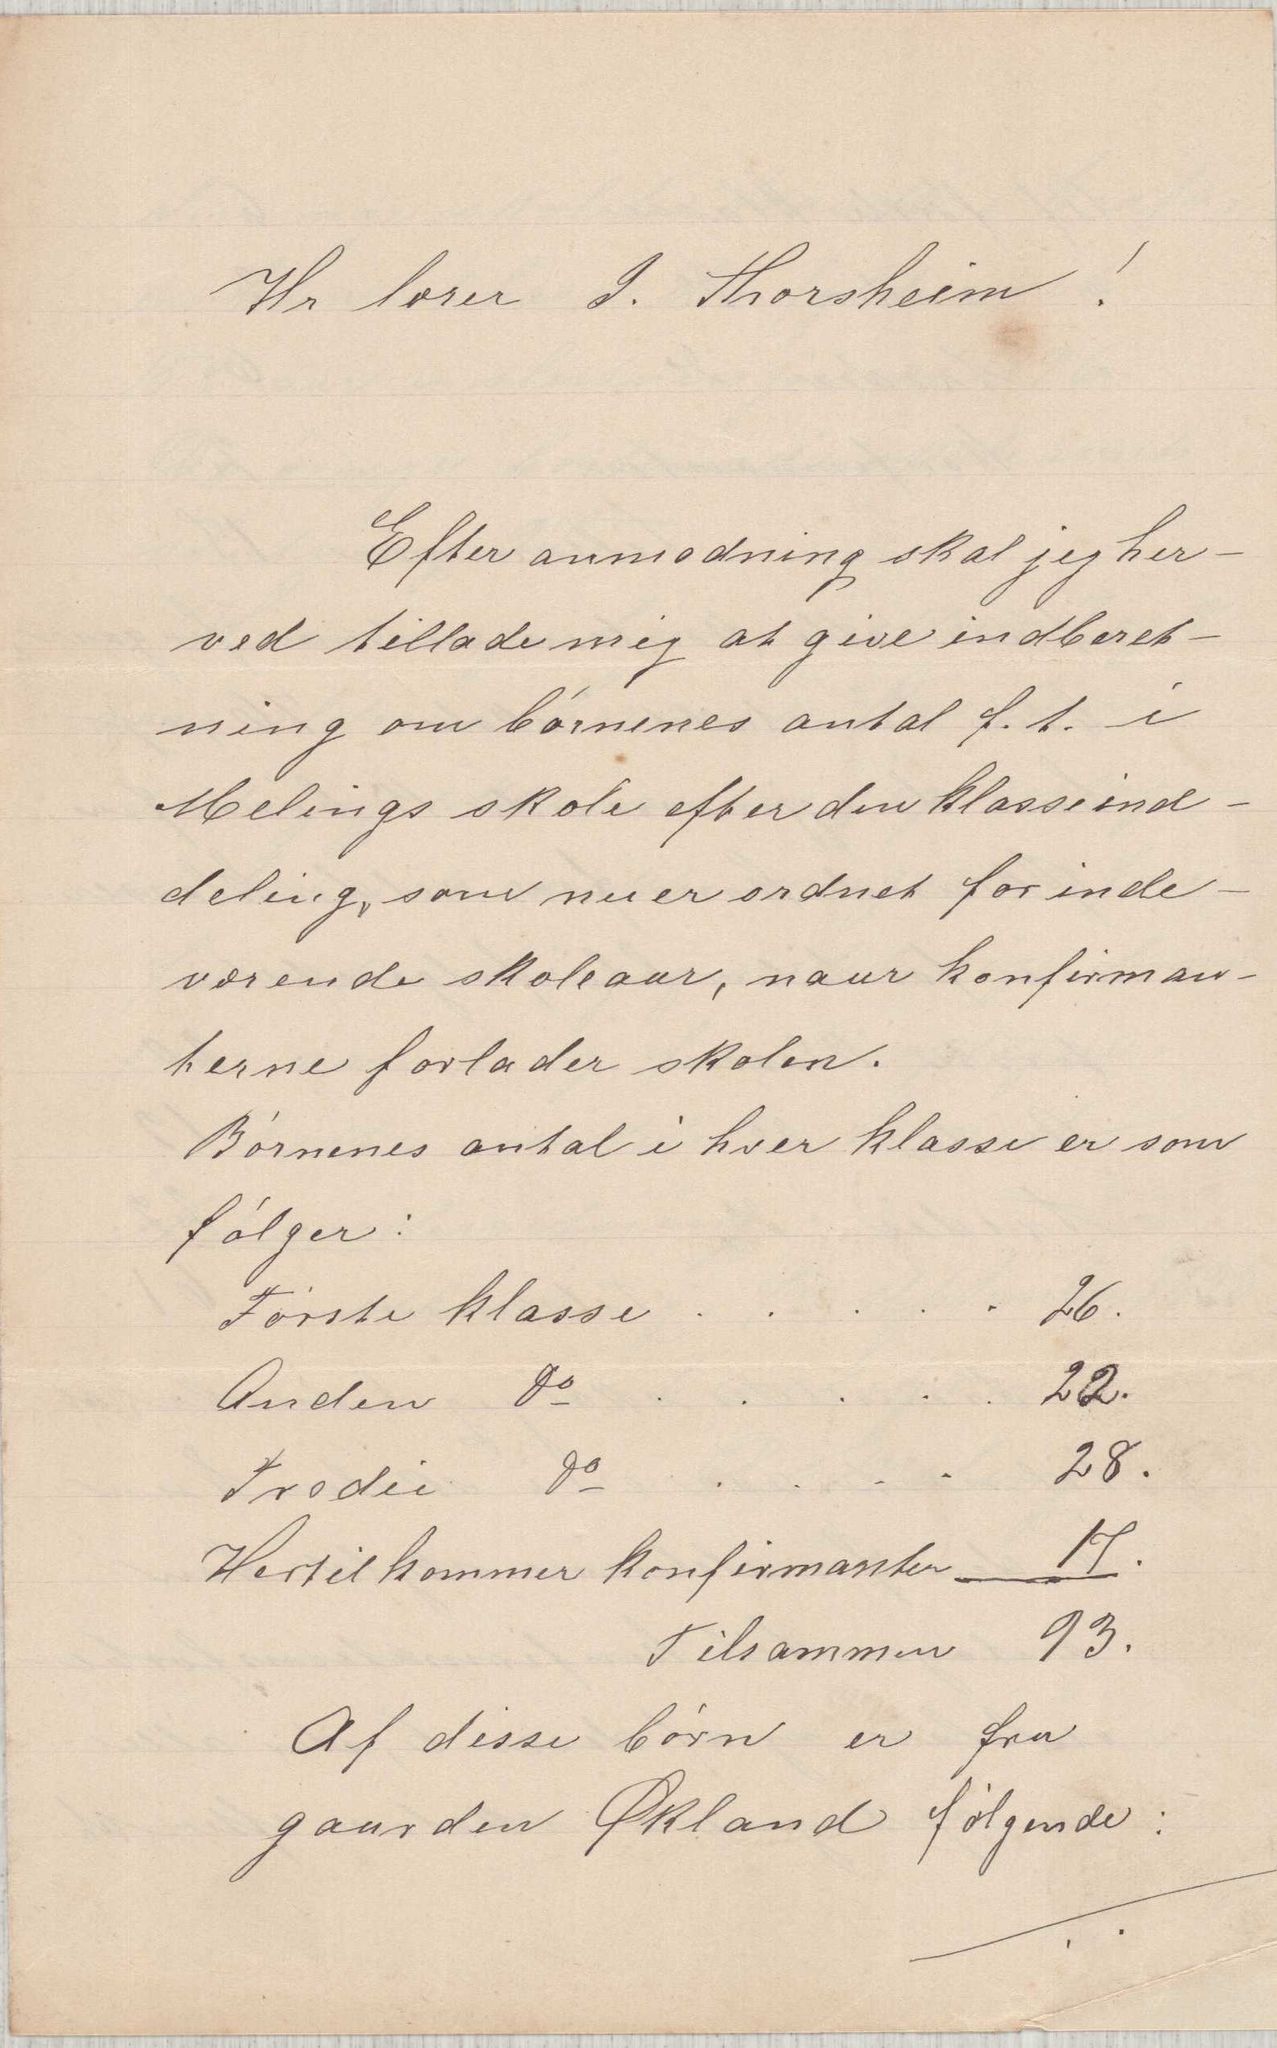 Hr lærer J. Thorsheim!
Efter anmodning skal jeg her-
ved tillade mig at give indberet-
ning om börnenes antal f. t. i
Melings skole efter den klasseind-
deling, som nu er ordnet for inde-
værende skoleaar, naar konfirman-
terne forlader skolen.
Börnenes antal i hver klasse er som
fölger:
Förste klasse . . . . . 26.
Anden do . . . . 22.
Tredie do . . . . 28.
Hertil kommer konfirmanter 17.
Tilsammen 93.
Af disse börn er fra
gaarden Økland fölgende: